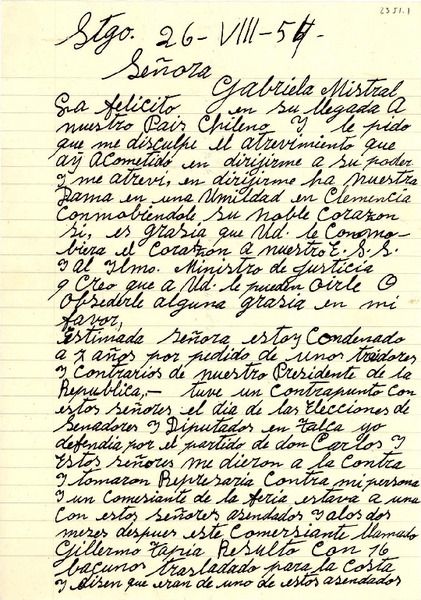 23 J1.1
Stgo. 26-VIII-54-
Señora
Gabriela Mistral
La felicito en su llegada A
nuestro Pais Chileno Y le pido
que me disculpe el atrevimiento que
ay Acometido en dirijirme a su poder
y me atrevi, en dirijirme ha nuestra
Dama en una Umildad en Clemencia
Conmobiendole su noble Corazon
si, es grasia que Ud. le Conmo-
biera el Corazon a nuestro E. S. S.
Y al Ilmo. Ministro de justicia
q Creo que a Ud. le pueden oirle O
Obsederle alguna grasia en mi
favor,
Estimada señora, estoy Condenado
a 7 años por pedido de unos traidores
y Contrarios de nuestro Presidente de la
Republica,- tuve un Contrapunto Con
estos señores el dia de las Elecciones de
Senadores Y Diputados en Talca yo
defendia por el partido de don Carlos Y
Estos señores me dieron a la Contra
Y tomaron Represaria Contra mi persona
Y un Comersiante de la feria estava a una
Con estos señores asendados Y alos dos
mezes despues este Comersiante llamado
Gillermo Tapia Resulto Con 16
bacunos trasladado para la Costa
Y disen que eran de uno de estos asendados